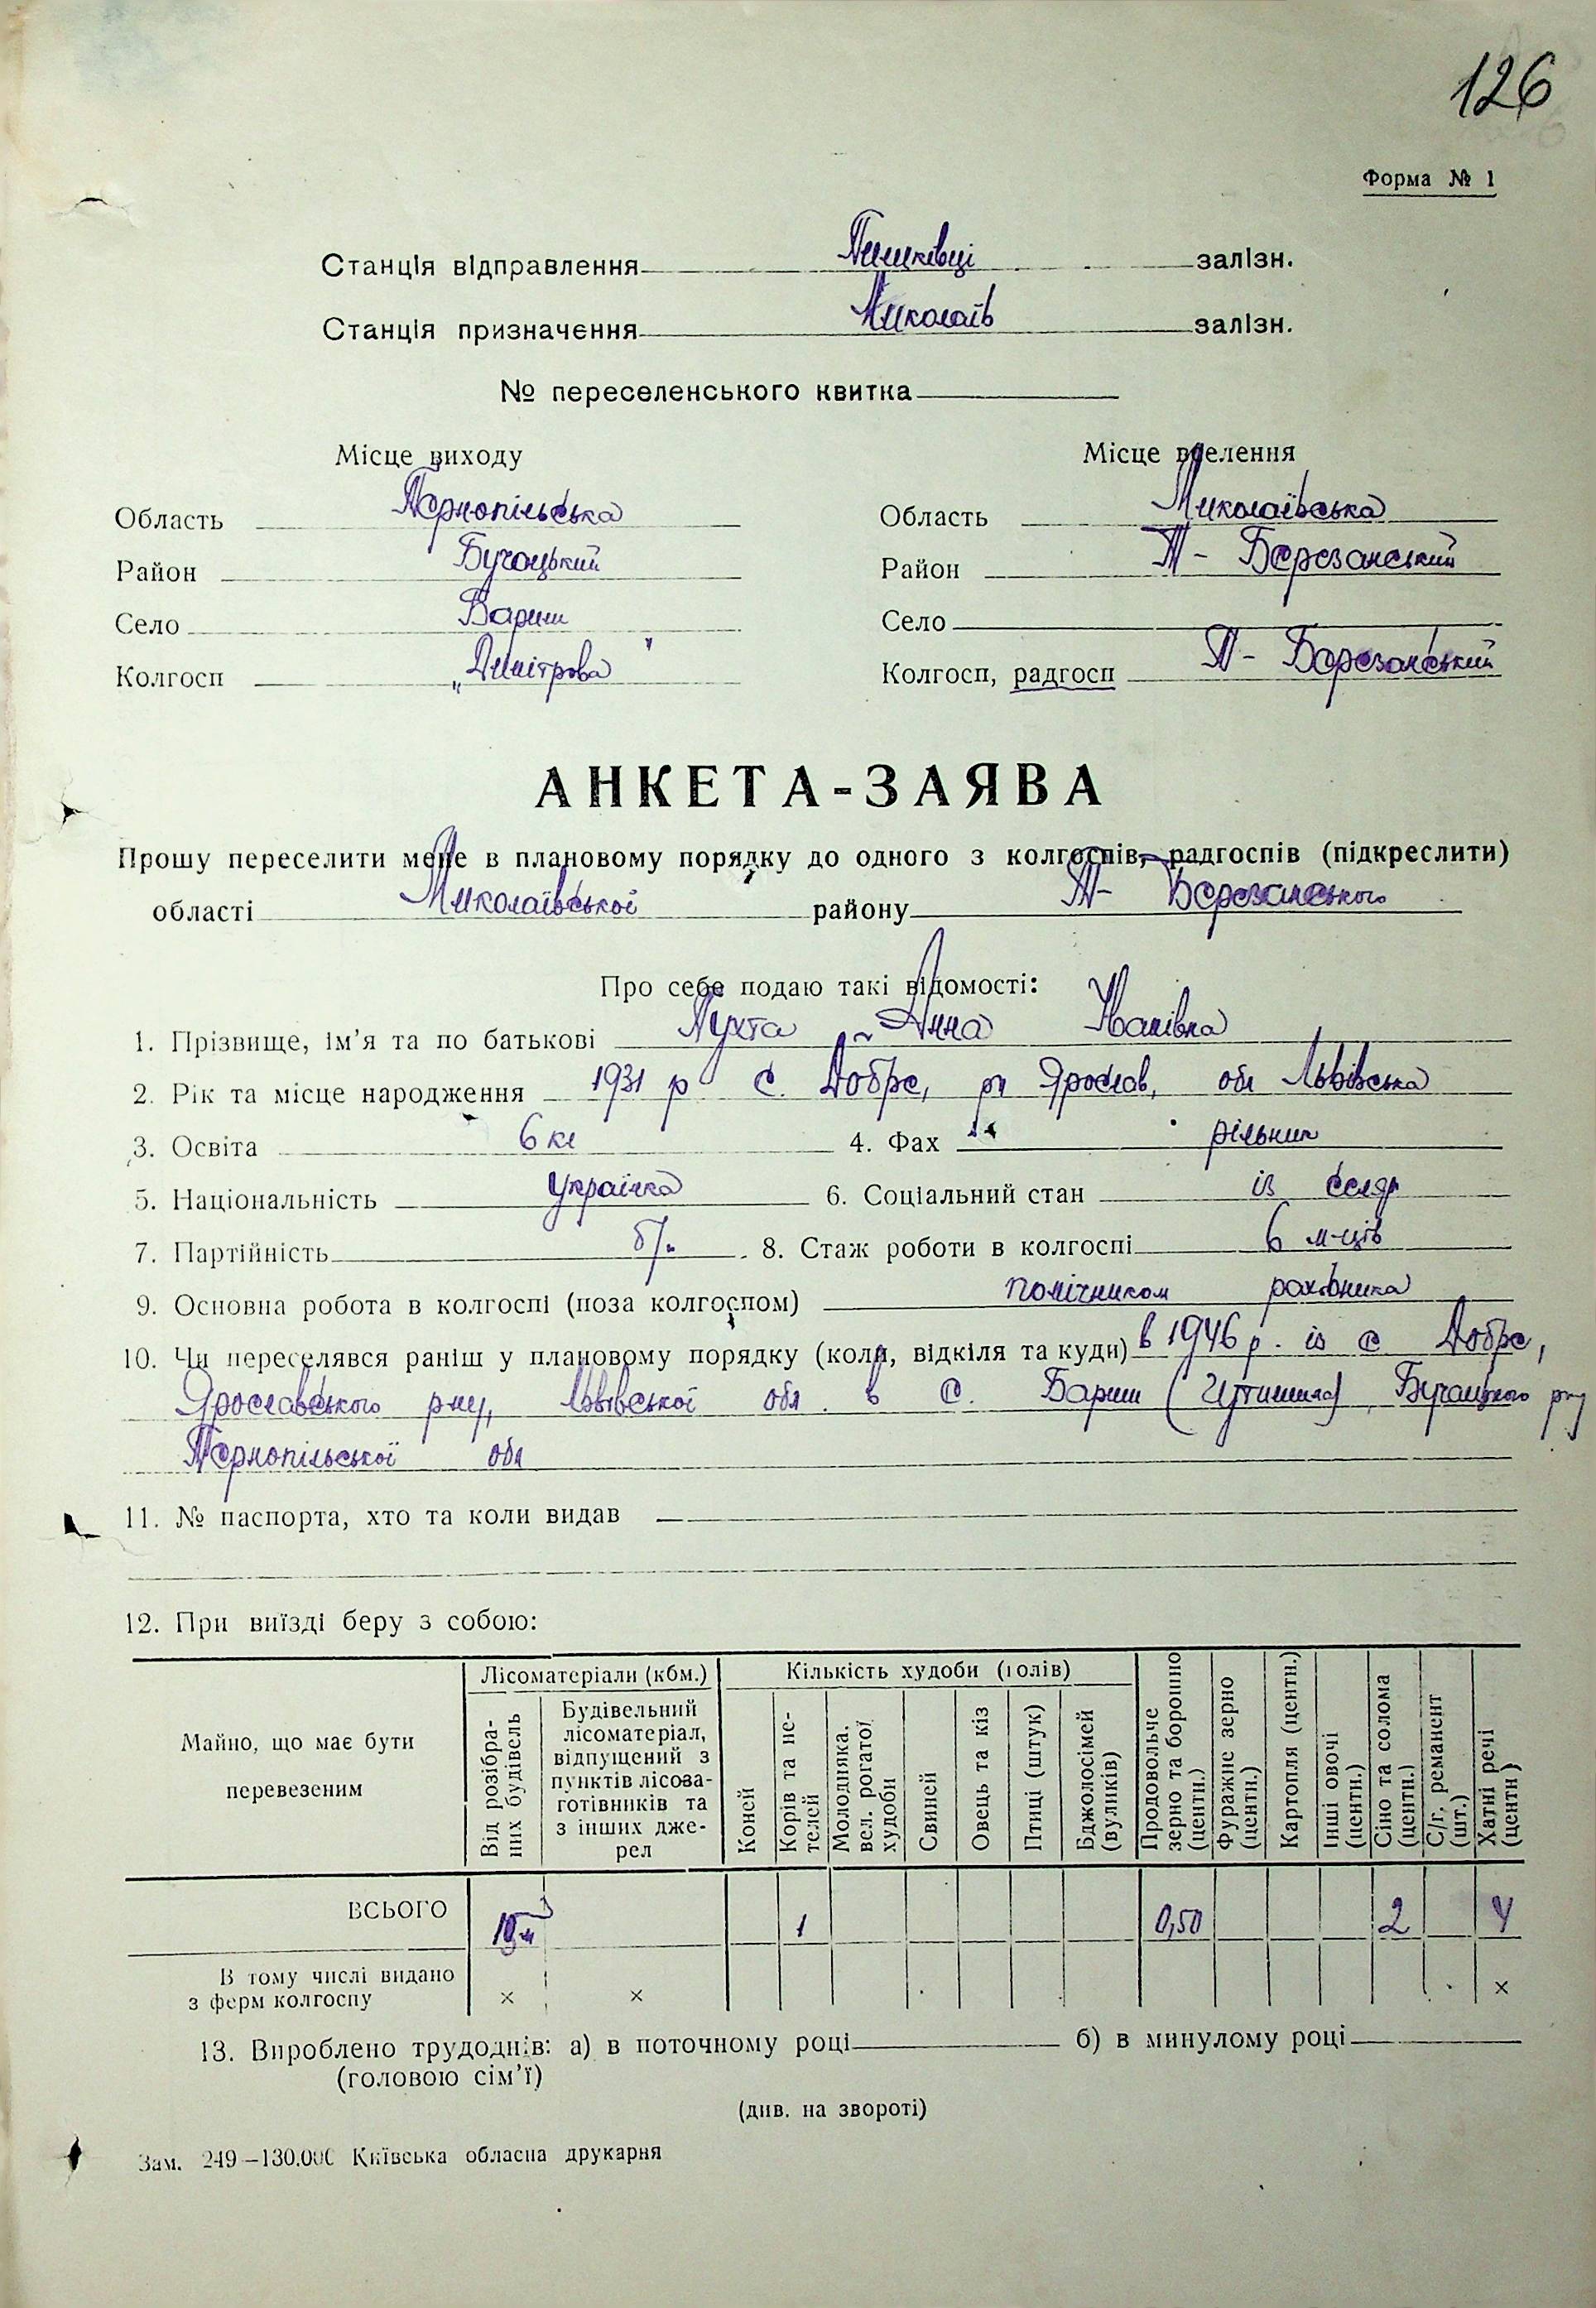 126
Форма № 1
Станція відправлення Пишківці залізн.
Станція призначення Миколаїв залізн.
№ переселенського квитка
Місце виходу
Місце вселення
Область Тернопільська
Область Миколаївська
Район Бучацький
Район Т- Березанський
Село Бариш
Село
Колгосп „Димітрова"
Колгосп, радгосп Т- Березанський
АНКЕТА-ЗАЯВА
Прошу переселити мене в плановому порядку до одного з колгоспів, радгоспів (підкреслити)
області Миколаївської району Т- Березанського
Про себе подаю такі відомості:
1. Прізвище, ім'я та по батькові Пухта Анна Іванівна
2. Рік та місце народження 1931 р с. Добре, рн Ярослав, обл Львівська
3. Освіта 6 кл 4. Фах рільник
5. Національність українка 6. Соціальний стан із селян
7. Партійність б/п 8. Стаж роботи в колгоспі 6 м-ців
9. Основна робота в колгоспі (поза колгоспом) помічником рахівника
10. Чи переселявся раніш у плановому порядку (коли, відкіля та куди) в 1946 р. із с. Добре,
Ярославського рну, Львівської обл. в с. Бариш Бучацького рну
Тернопільської обл
11. № паспорта, хто та коли видав
12. При виїзді беру з собою:
Майно, що має бути перевезеним
Лісоматеріали (кбм.)
Від розібраних будівель
Будівельний лісоматеріал, відпущений з пунктів лісозаготівників та з інших джерел
Кількість худоби (голів)
Коней
Корів та нетелей
Молодняка, вел. рогатої худоби
Свиней
Овець та кіз
Птиці (штук)
Бджолосімей (вуликів)
Продовольче зерно та борошно (центн.)
Фуражне зерно (центн.)
Картопля (центн.)
Інші овочі (центн.)
Сіно та солома (центн.)
С/г. реманент (шт.)
Хатні речі (центн)
ВСЬОГО 1 0,50 2 4
В тому числі видано з ферм колгоспу × × ×
13. Вироблено трудоднів: а) в поточному році б) в минулому році
(головою сім'ї)
(див. на звороті)
Зам. 249—130.000 Київська обласна друкарня